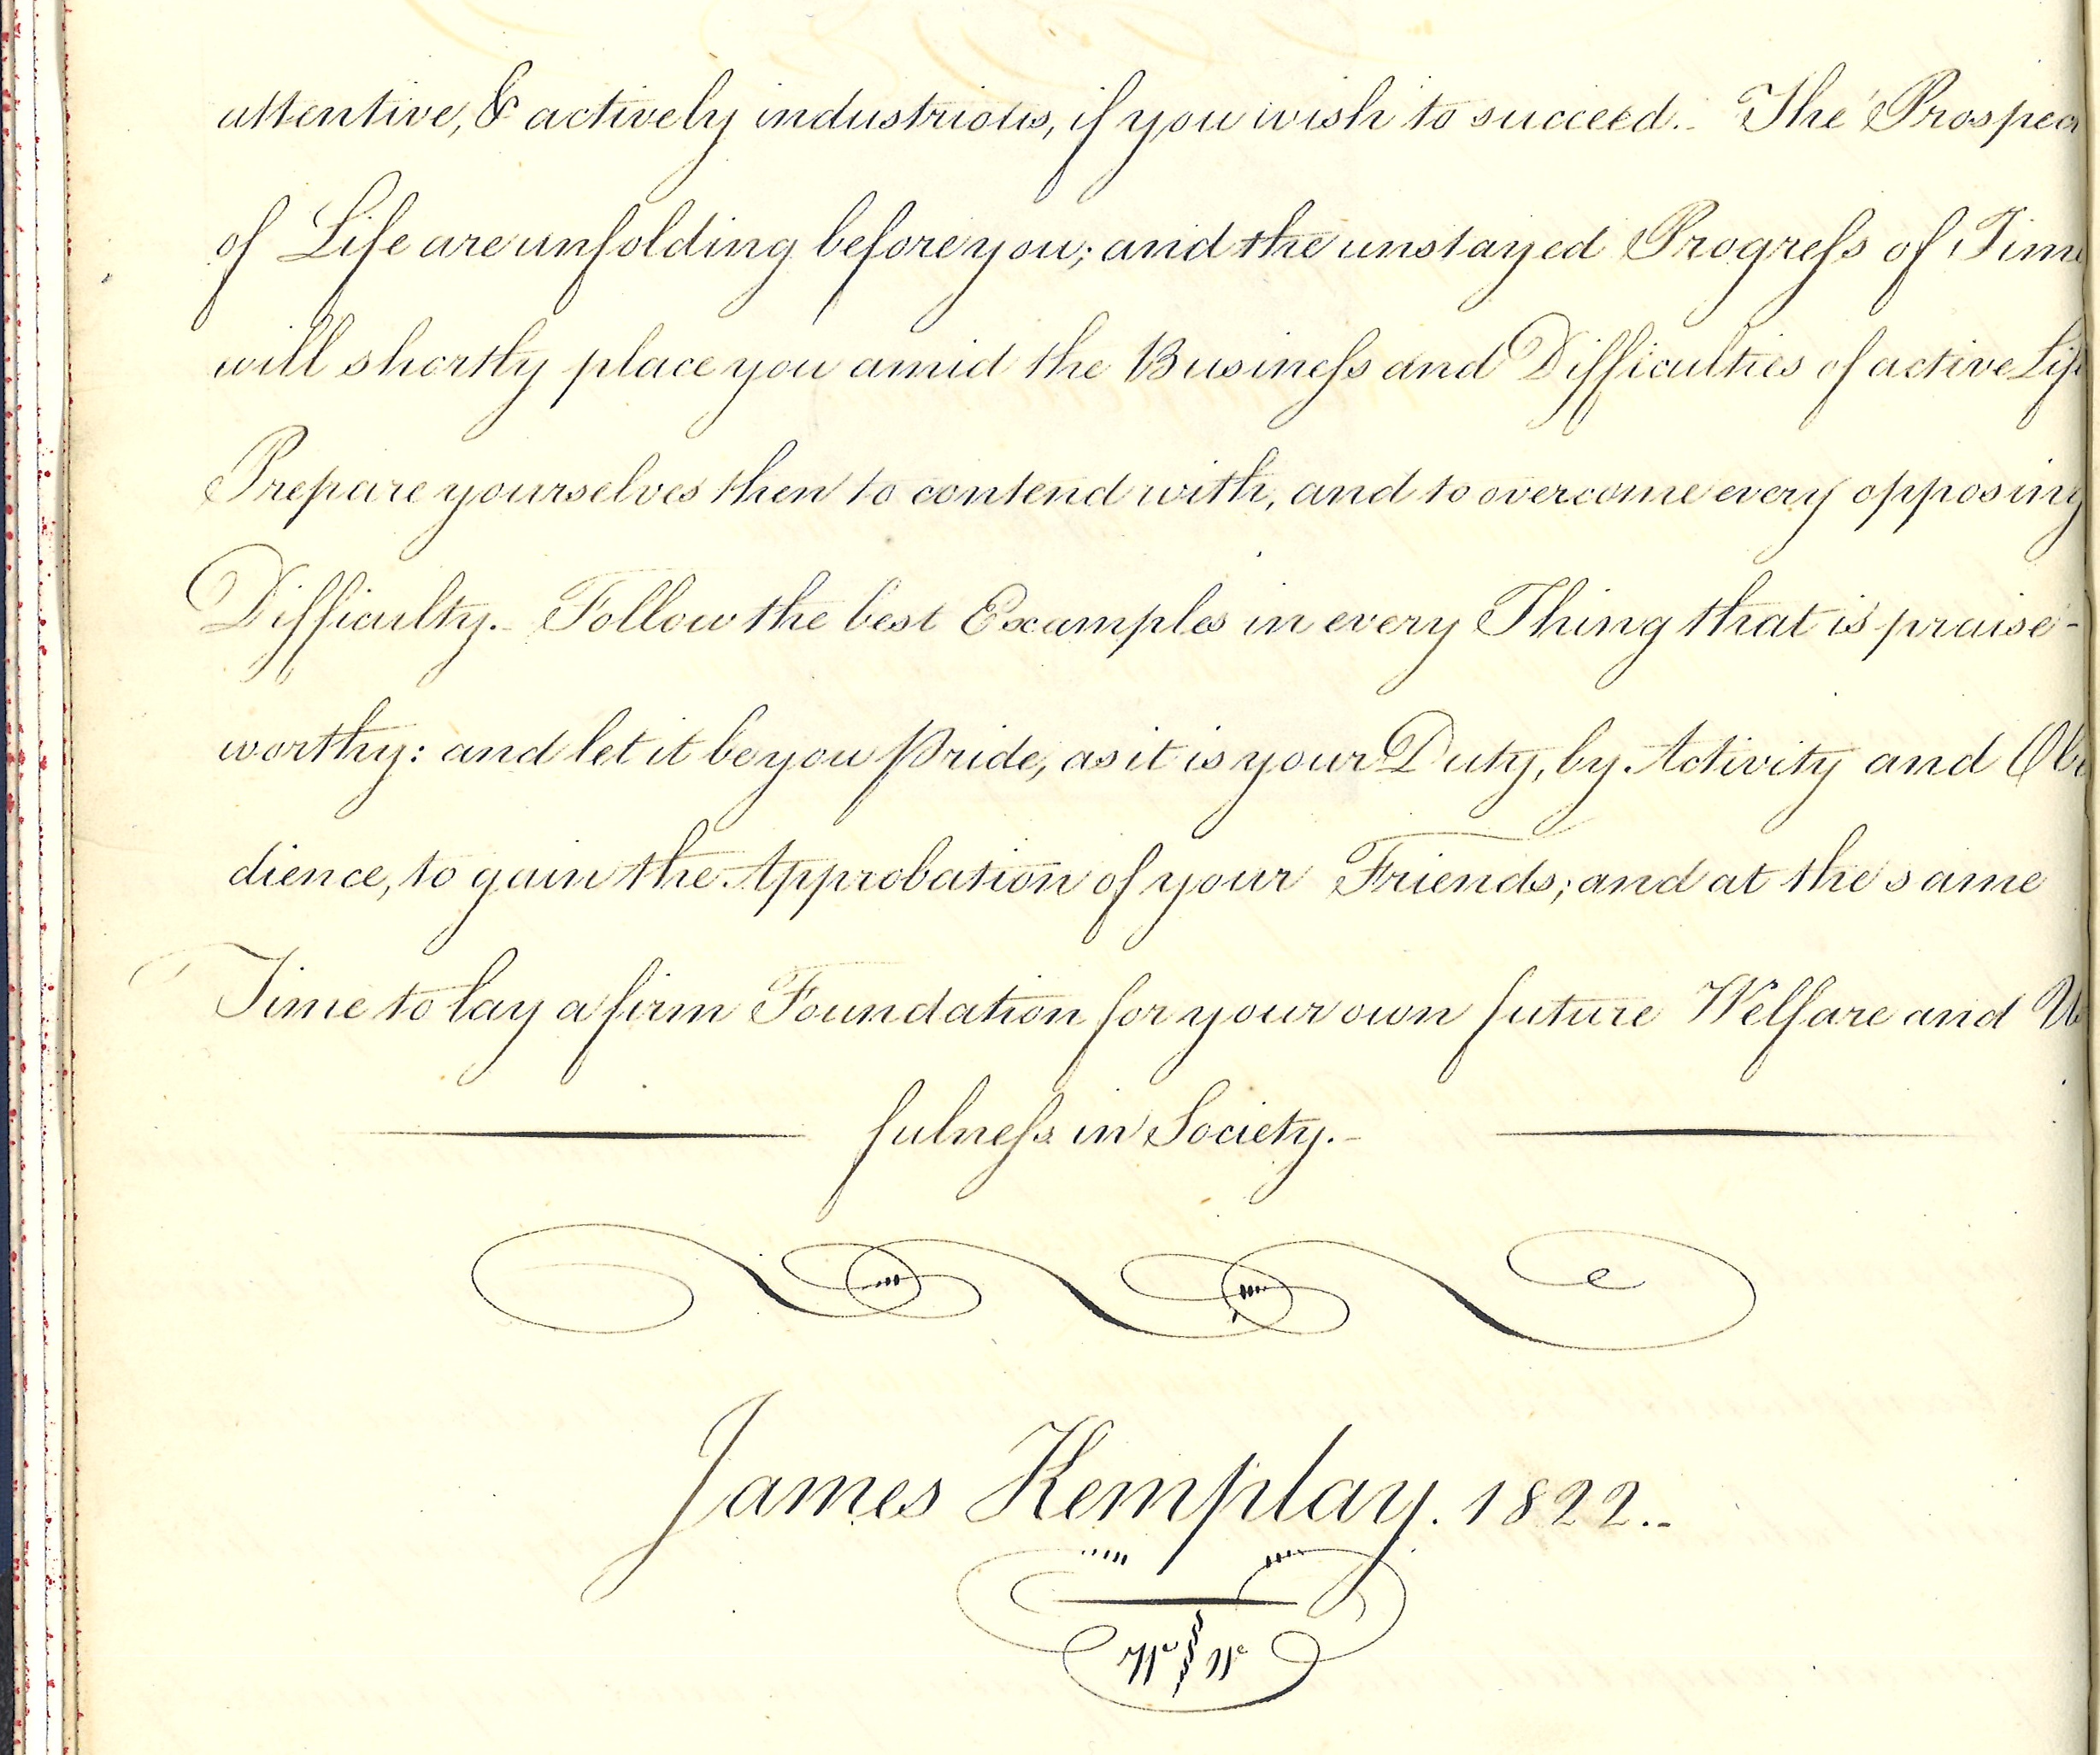 attentive, & actively industrious, if you wish to succeed.- The Prospec
of Life are unfolding before you; and the unstayed Progreſs of Tim
will shortly place you amid the Busineſs and Difficulties of active Lif
Prepare yourselves then to contend with, and to overcome every opposing
Difficulty.- Follow the best Examples in every Thing that is praise-
worthy: and let it be you Pride, as it is your Duty, by Activity and Obe
dience, to gain the Approbation of your Friends; and at the same
Time to lay a firm Foundation for your own future Welfare and Us
fulneſs in Society.-
James Kemplay. 1822.-